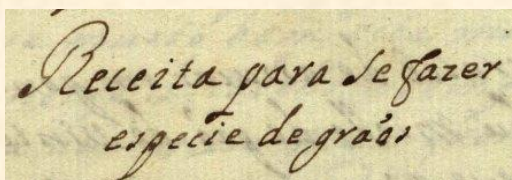 Receita para se fazer
especie de graõs